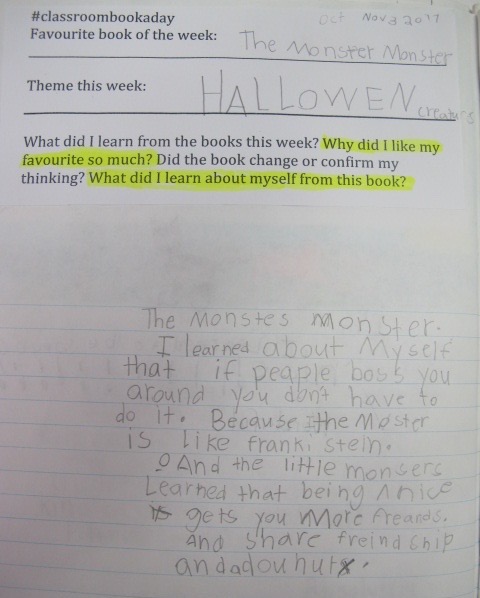 #classroombookaday Oct Nov 3 2017
Favourite book of the week: The Monster Monster
Theme this week: HALLOWEN creaturs
What did I learn from the books this week? Why did I like my
favourite so much? Did the book change or confirm my
thinking? What did I learn about myself from this book?
The Monstes monster.
I learned about Myself
that if peaple boss you
around you don't have to
do it. Because the Moster
is like franki stein.
And the little monsers
Learned that being nice
gets you More freands.
And share freind ship
and adounuts.